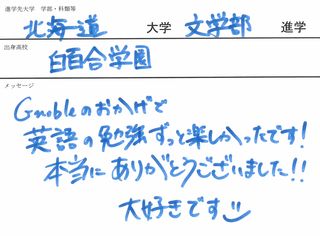 進学先大学 学部・科類等
北海道 大学 文学部 進学
出身高校
白百合学園
メッセージ
Gnobleのおかげで
英語の勉強ずっと楽しかったです!
本当にありがとうございました!!
大好きです